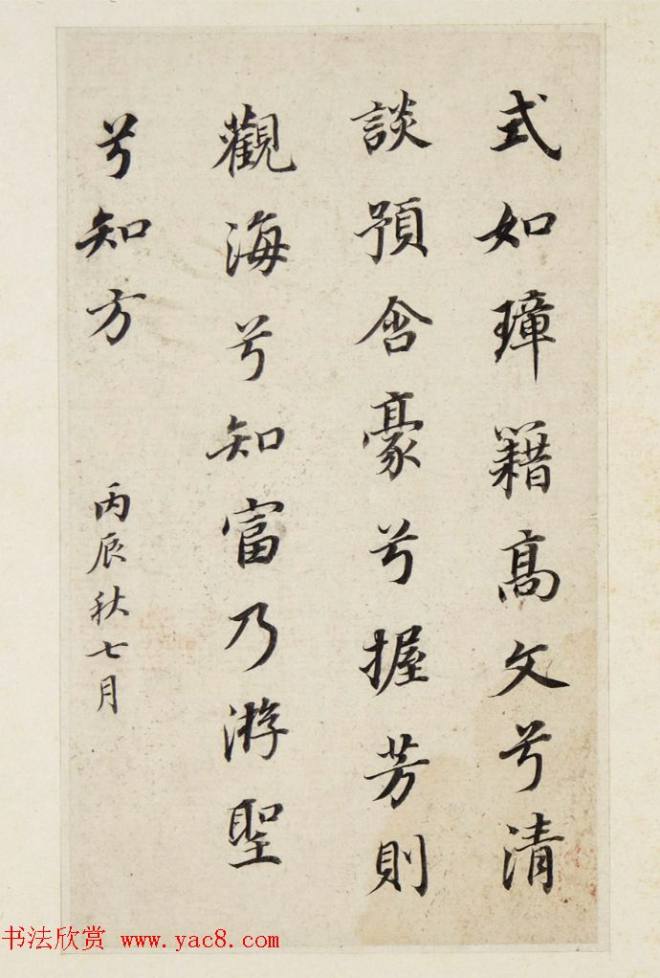 式如璋籍高文兮清
談預含豪兮握芳則
觀海兮知富乃游聖
兮知方
丙辰秋七月
书法欣赏 www.yac8.com